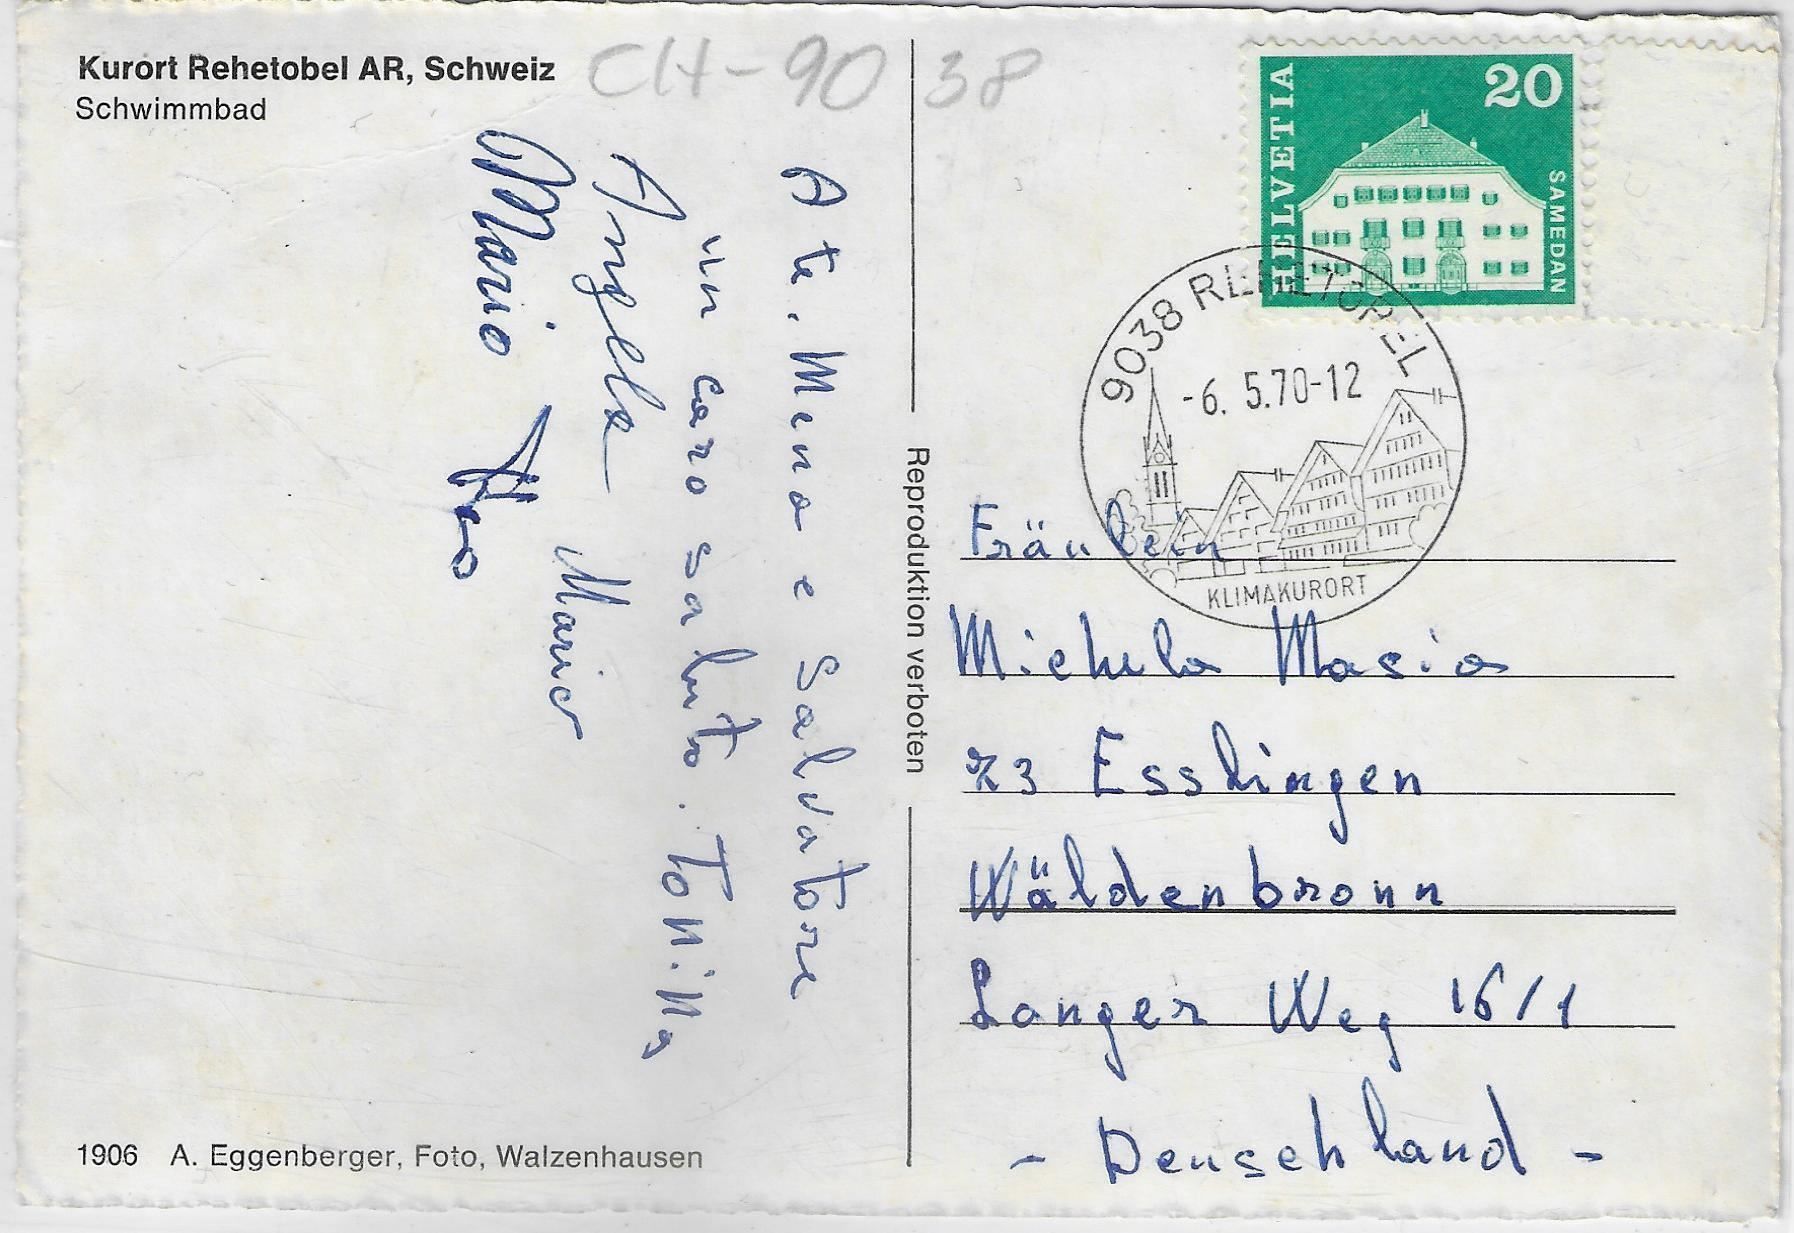 Kurort Rehetobel AR, Schweiz
Schwimmbad
CH-9038
HELVETIA
20
SAMEDAN
9038 REHETOBEL
-6. 5.70-12
KLIMAKURORT
A te, Mena e Salvatore
un caro saluto. Tonina
Angela Mario
Mario
Reproduktion verboten
Fräulein
Michela Masia
73 Esslingen
Wäldenbronn
Langer Weg 16/1
- Deuschland -
1906 A. Eggenberger, Foto, Walzenhausen